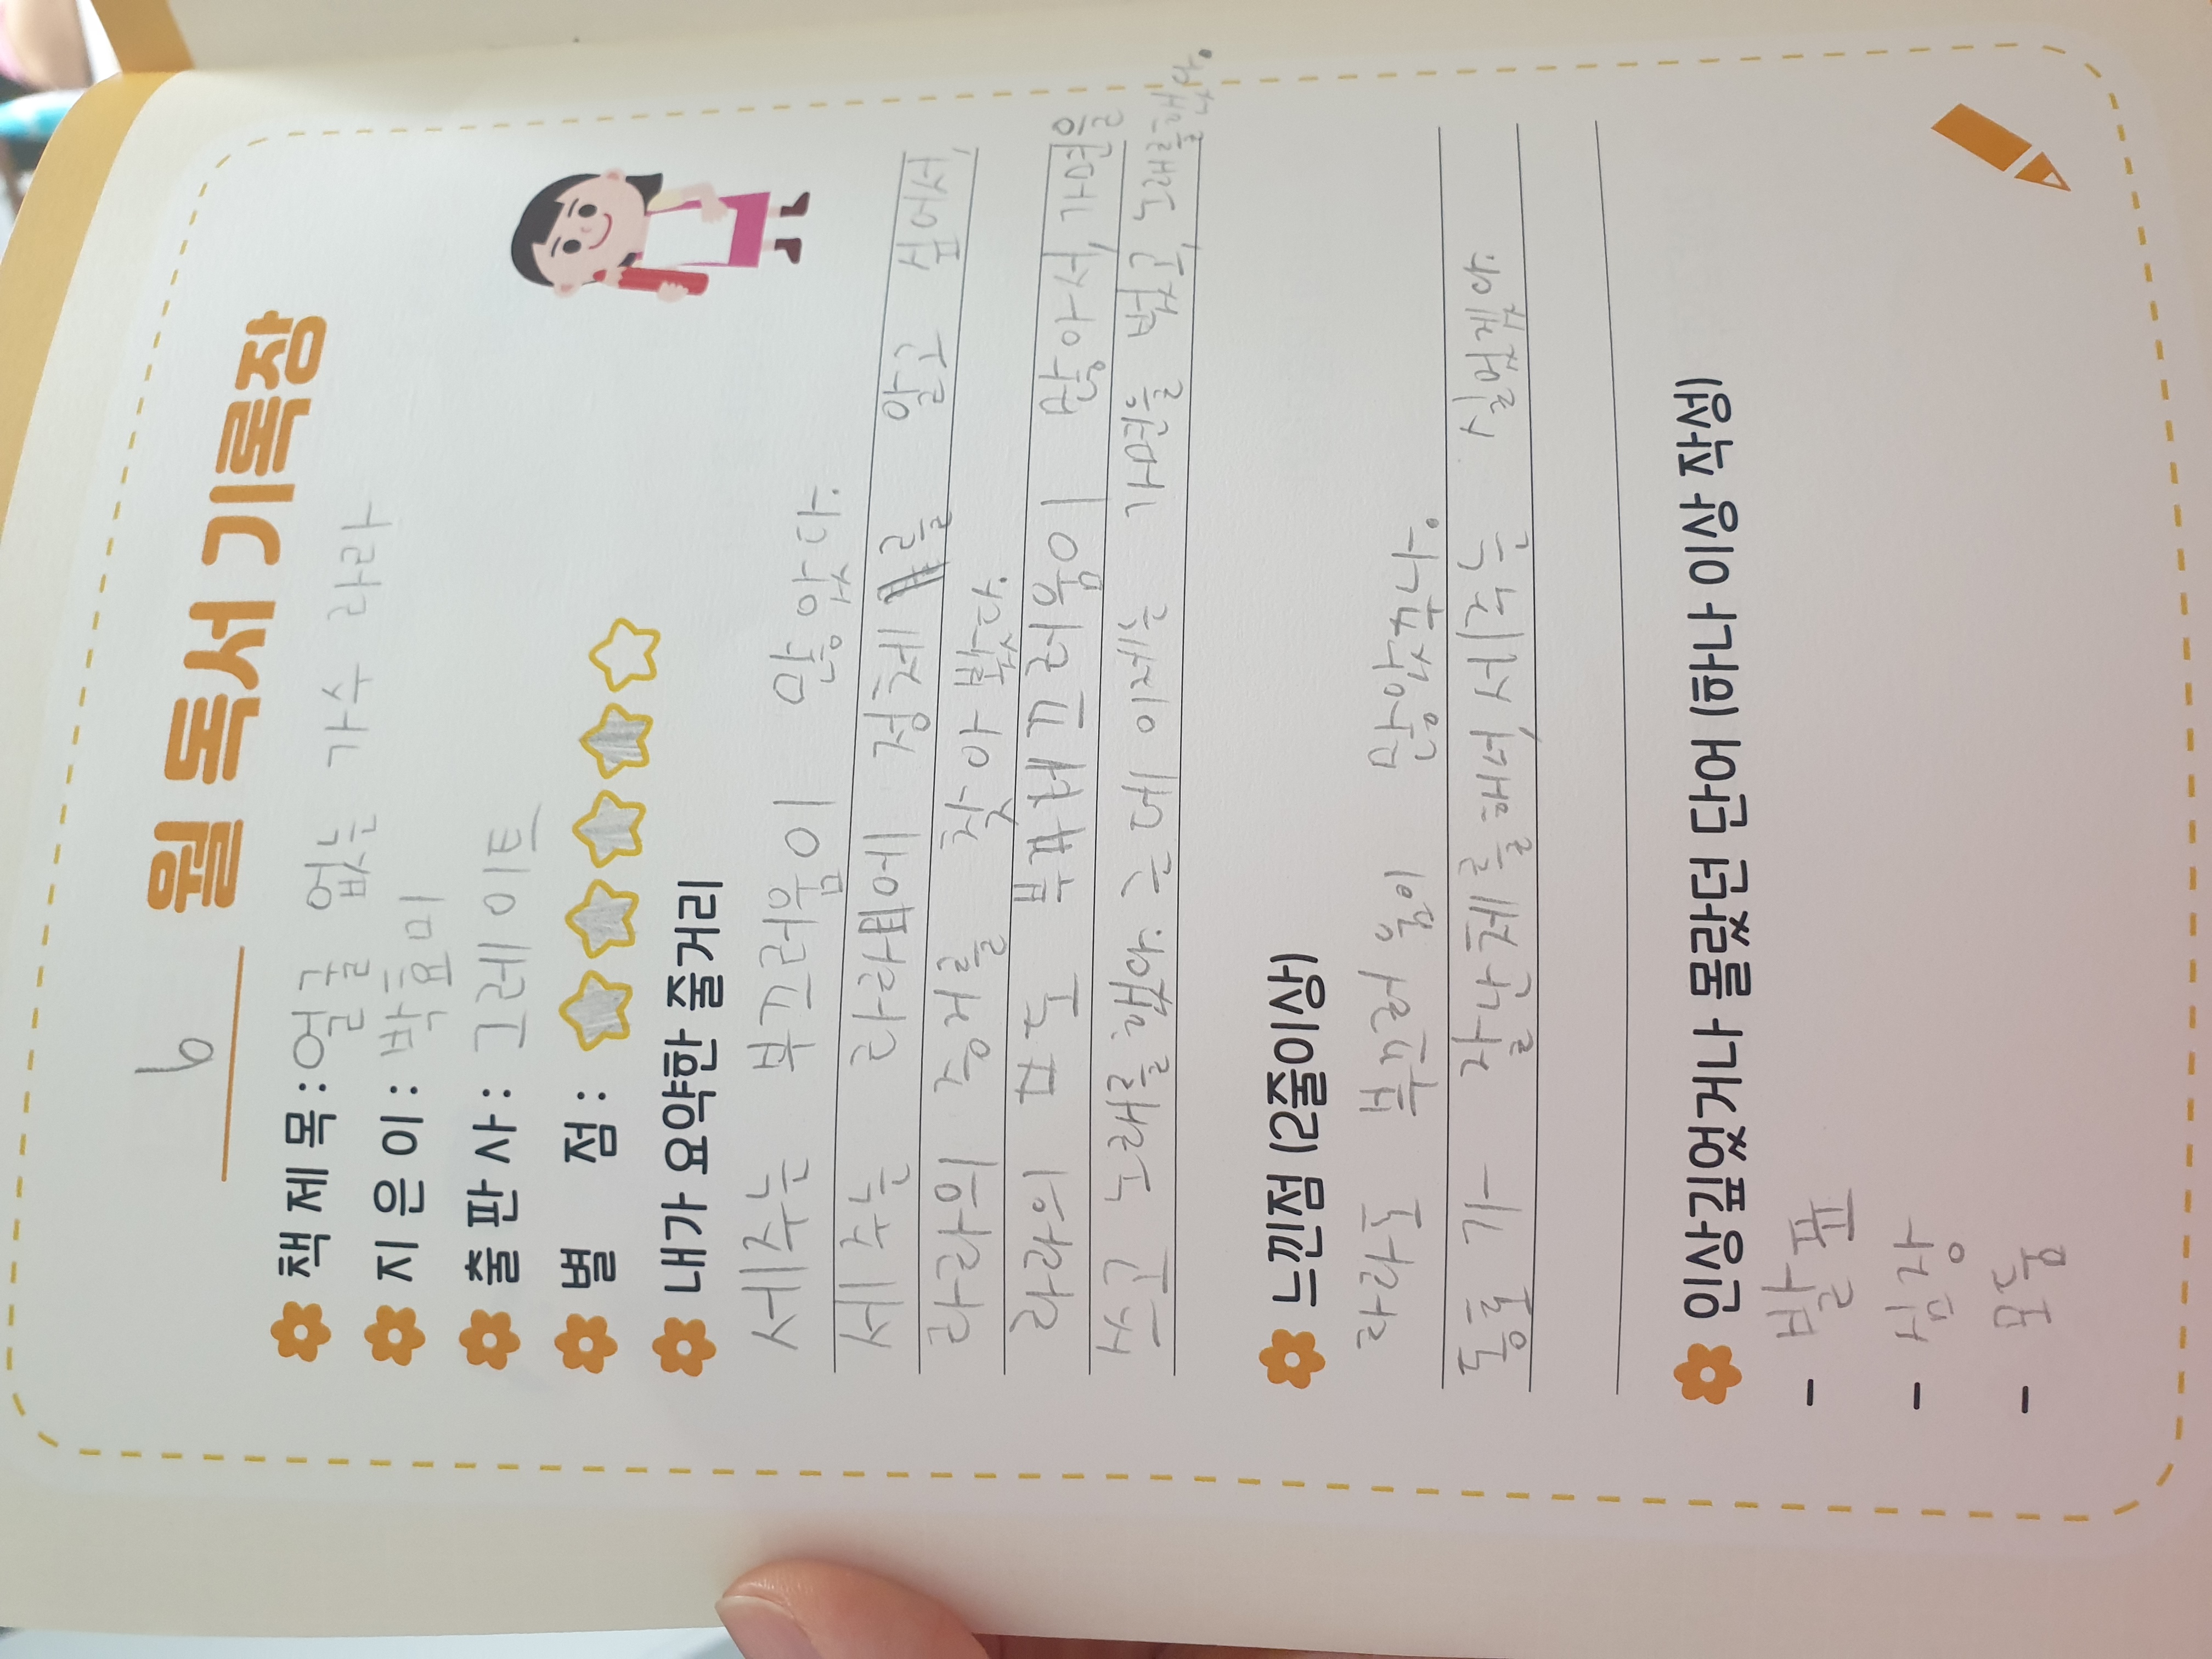 6 월 독서 기록장
책 제 목 : 얼굴 없는 가수 라라
지 은 이 : 박효미
출 판 사 : 그레이트
별 점 :
내가 요약한 줄거리
세주는 부끄러움이 많았다.
세주는 라라에 정체를 알고 싶어서,
라라의 증거를 찾아봤다.
라라의 도 부끄러움이 많아서, 가면을
쓰고 노래를 했다. 근데 이제는 가면을 벗고, 노래를했다.
느낀점 (2줄이상)
라라도 부끄러움이 많았꾸나.
동호가 잘난체를해서, 세주는 실었겠다.
인상깊었거나 몰랐던 단어 (하나 이상 작성)
- 발표
- 심장
- 모둠